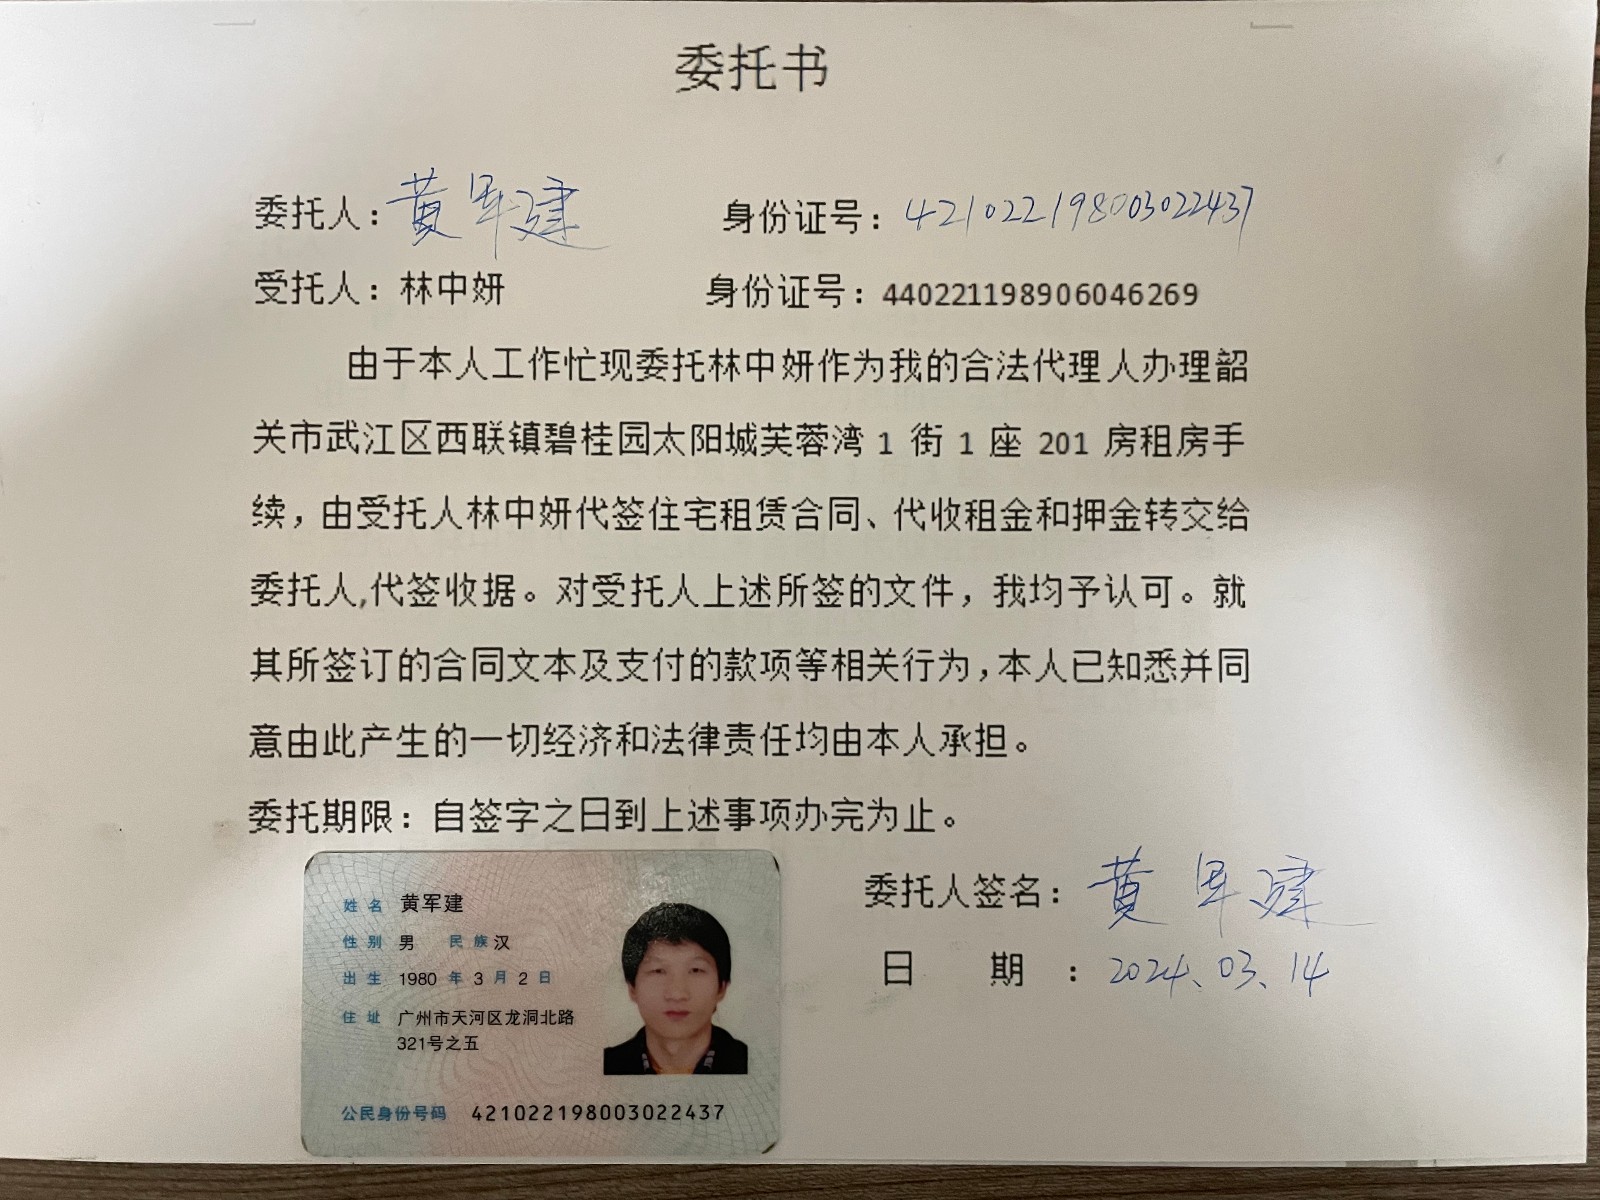 委托书
委托人：黄军建 身份证号：421022198003022437
受托人：林中妍 身份证号：440221198906046269
由于本人工作忙现委托林中妍作为我的合法代理人办理韶
关市武江区西联镇碧桂园太阳城芙蓉湾 1 街 1 座 201 房租房手
续，由受托人林中妍代签住宅租赁合同、代收租金和押金转交给
委托人,代签收据。对受托人上述所签的文件，我均予认可。就
其所签订的合同文本及支付的款项等相关行为，本人已知悉并同
意由此产生的一切经济和法律责任均由本人承担。
委托期限：自签字之日到上述事项办完为止。
委托人签名：黄军建
日 期 ：2024.03.14
姓名 黄军建
性别 男 民族 汉
出生 1980 年 3 月 2 日
住址 广州市天河区龙洞北路
321号之五
公民身份号码 421022198003022437